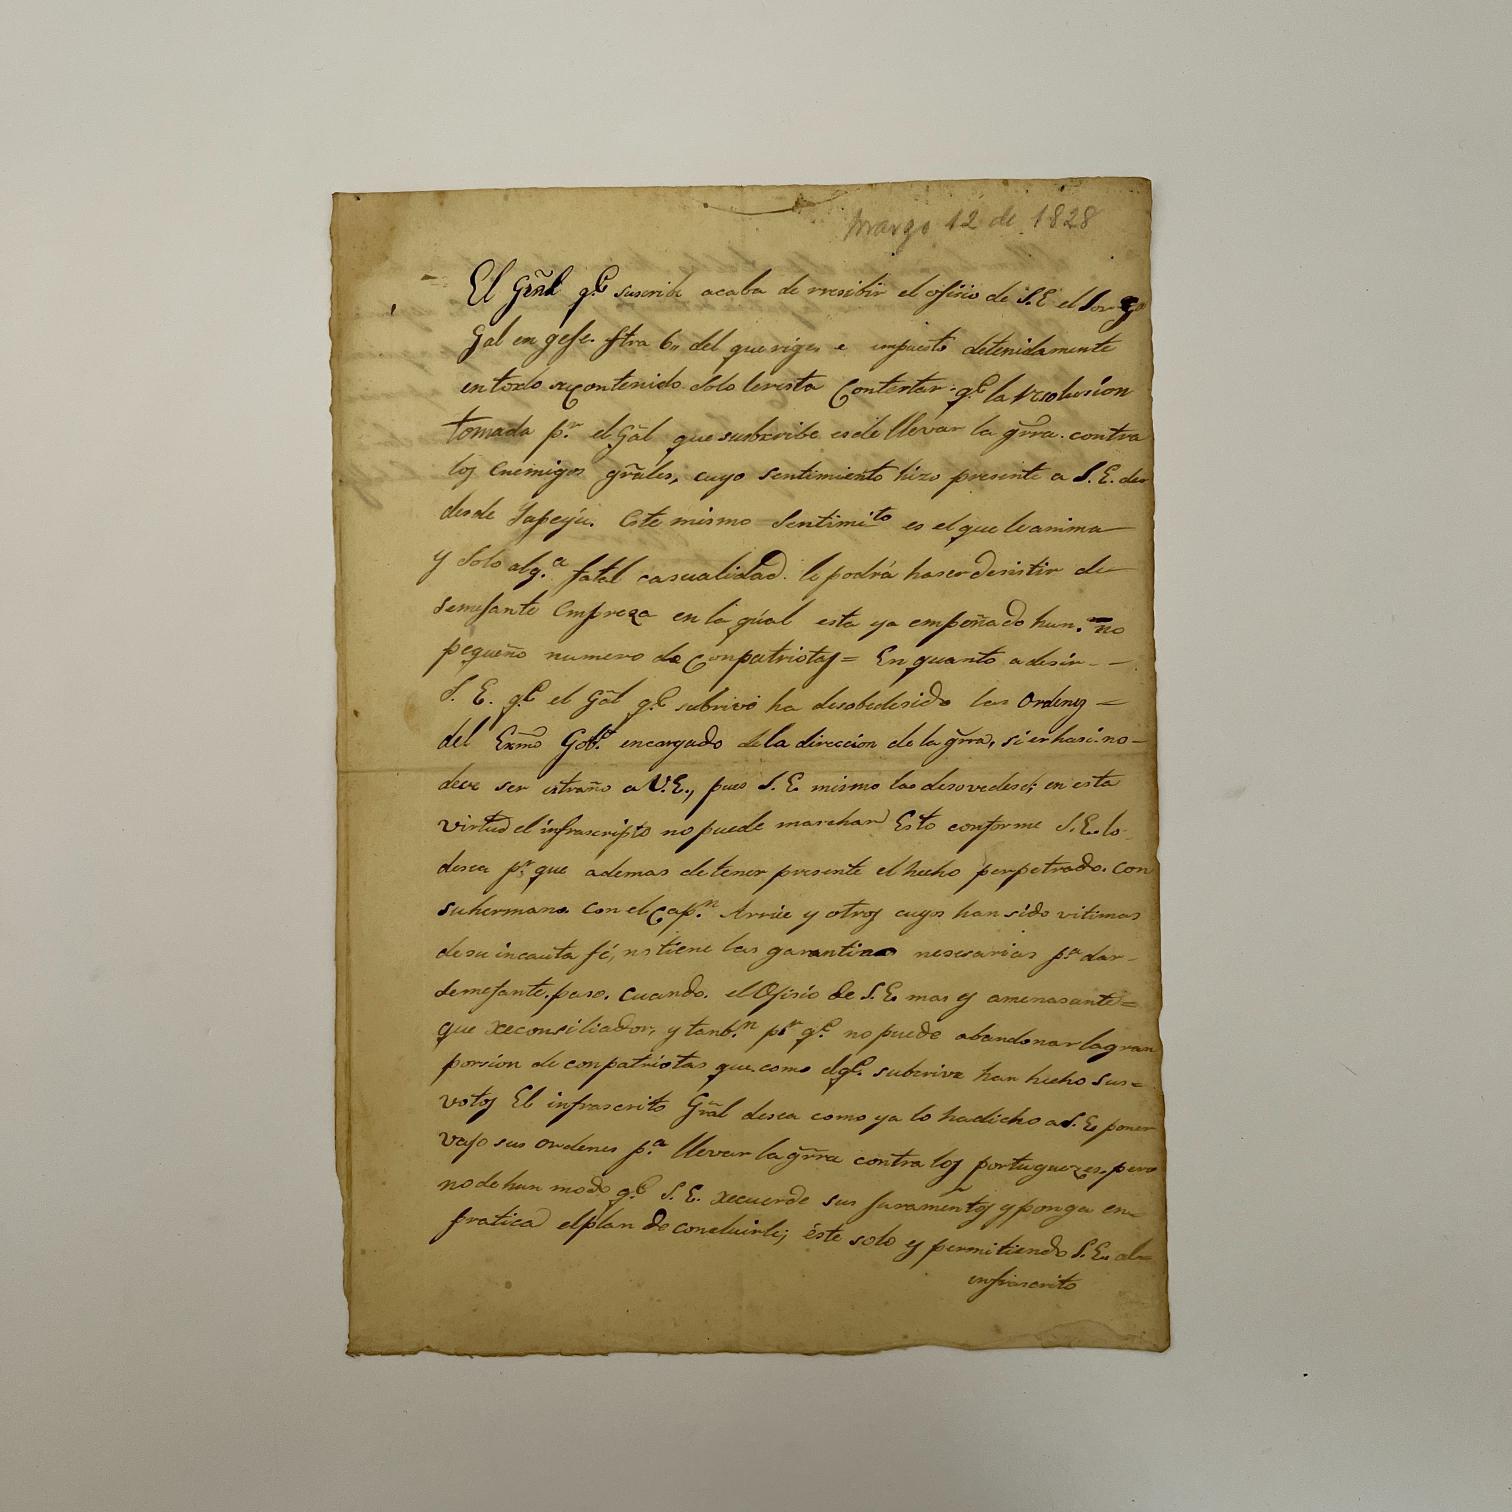 Marzo 12 de 1828
El Gen̄l q.e suscribe acaba de rresibir el ofisio de S.E. el
Gal en gefe. ftra 6,, del que rige, e impuesto detenidamente
en todo su contenido solo le resta Contestar q.e la resolusion
tomada p.r el Gal que subscribe es de llevar la gr̄ra. contra
los Enemigos gr̄ales, cuyo sentimiento hizo presente a S.E. des
desde Yapeyu. Este mismo Sentimi.to es el que le anima
y Solo alg.a fatal casualidad. le podrá haser desistir de
semejante Empreza en la qual esta ya empeñado hun. no
pequeño numero de Conpatriotas = En quanto a desir - -
S. E. q.e el Gal q.e subrive ha desobedesido las Ordenes =
del Exmo Gob.o encargado de la direccion de la gr̄ra, si es hasi no -
deve ser estraño a V.E., pues S.E. mismo las desovedese; en esta
virtud el infrascripto no puede marchar Esto conforme S.E. lo
desea p.r que ademas de tener presente el hecho perpetrado. con
su hermano con el Cap.n Arrúe y otros cuyos han sido vitimas
de su incauta fé, no tiene las garantias nesesarias p.a dar -
semejante. paso. cuando. el Ofisio de S.E. mas es amenasante =
que reconsiliador, y tanb.n p.r q.e no puede abandonar la gran
porsion de conpatriotas que como el q.e subcrive han hecho sus =
votos El infrascrito Gr̄al desea como ya lo ha dicho a S.E. poner
vajo sus ordenes p.a llevar la gr̄ra contra los portuguezes, pero
no de hun modo q.e S.E. recuerde sus juramen̄tos y ponga en =
pratica el plan de concluirle; éste solo es permitiendo S.E. al =
infrascrito